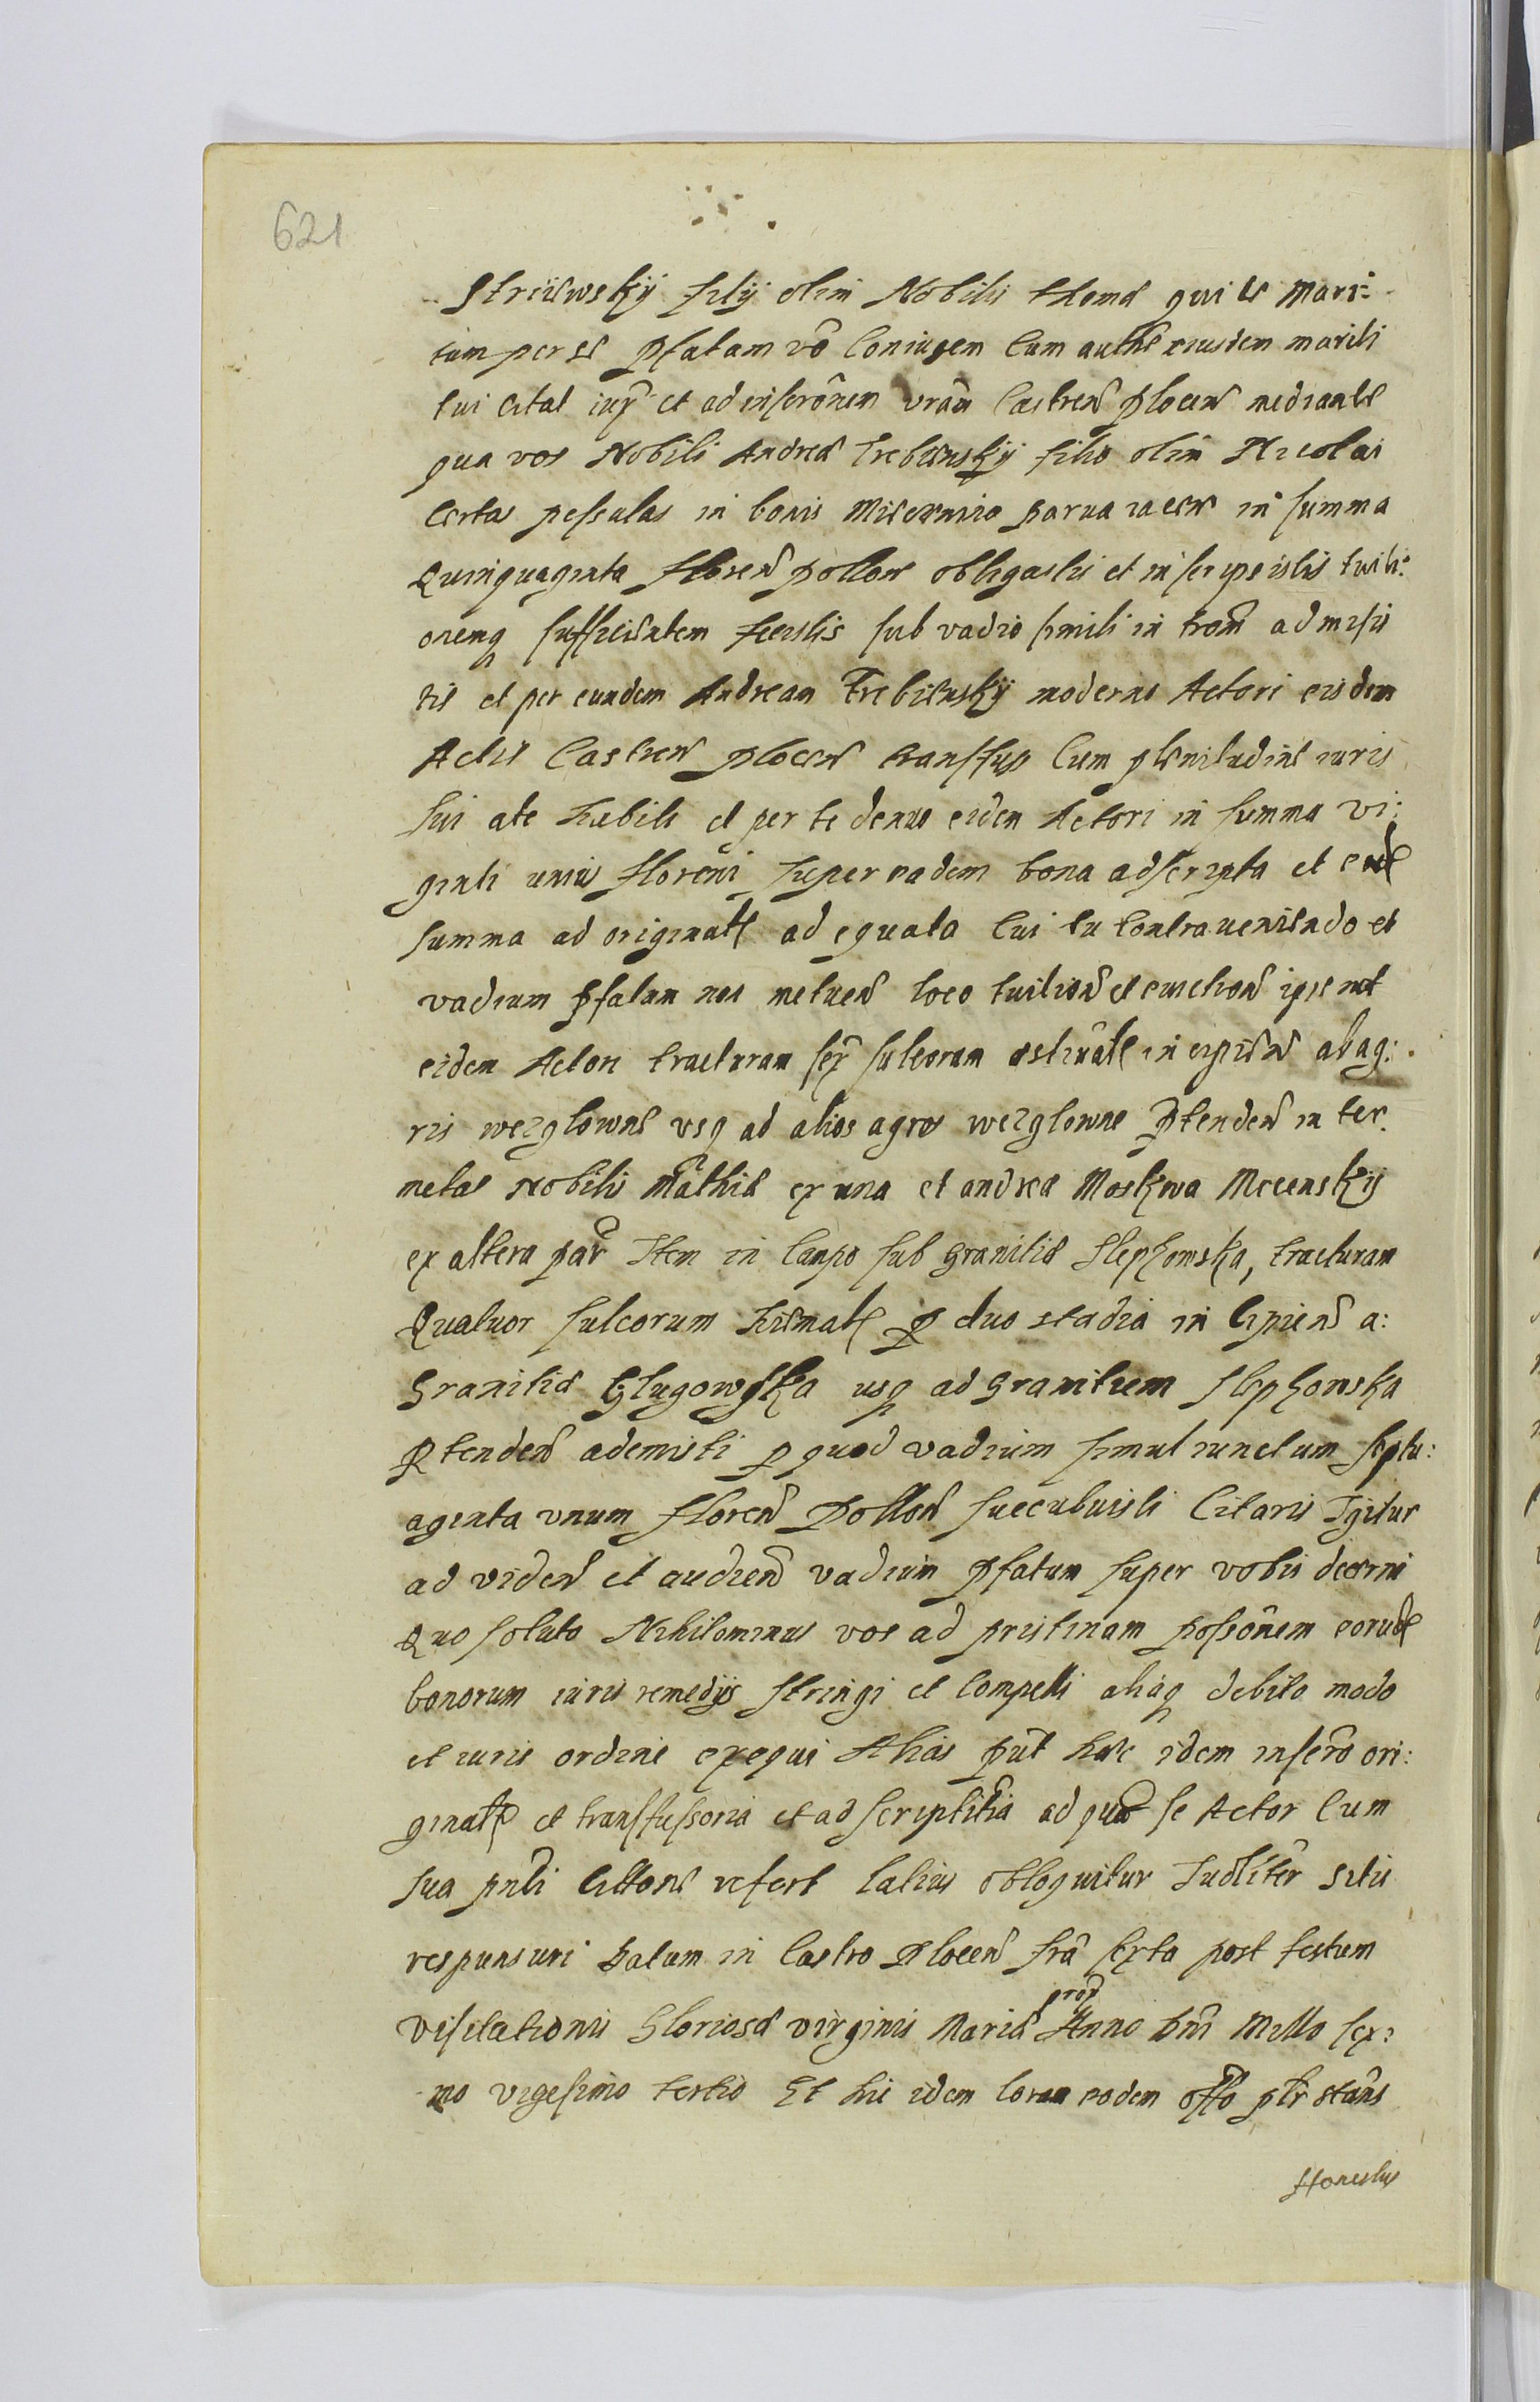 621
Strzilwskÿ filÿ olim Nobilis thoma qui te Mari:
tum per se pfatam vo Coniugem Cum auth eiusdem mariti
tui citat iux et ad inscronem vram Castren plocen mediante
qua vos Nobili Andrea trebinskÿ filio olim Nicolai
Certas pessulas in bonis parua iacen in summa
Quinquaginta floren pollon obligastis et inscripsistis tuiti:
onemq sufficientem fecistis sub vadio simili in trom admisis
tis et per eundem Andream Trebienskÿ moderno Actori eisdem
Actis Castren plocen transfus Cum plenitudine iuris
sui ate habitis et per te denuo eidem Actori in summa vi:
ginti unius floreni super eadem bona adscripta et ead
summa ad originale ad equata Cui tu Contraueniendo et
vadium pfatum non metuen loco tuition et euiction ipse met
eidem Actori tracturam sex sulcorum estiuale incipien ab ag:
ris wezglowne vsq ad alios agros wezglowne ptenden inter
metas Nobilis Mathia ex una et andrea Moskwa Mccenskÿ
ex altera par Item in Campo sub Granitia Slephowska, tracturam
Quatuor sulcorum hiemale p duo stadia incipien a:
Granitia Glugowska usq ad Granitiem slephowska
ptenden ademisti p quod vadium simul iunctum septu:
aginta vnum floren Pollon succubuisti Citaris Igitur
ad viden et audien vadium pfatum super vobis decerni
Quo soluto Nihilominus vos ad pristinam possonem eorud
bonorum iuris remedÿs stringi et Compelli aliaq debito modo
et iuris ordine exequi Alias put haec idem inscro ori:
ginalis et transfussoria et ad scriptitia ad qua se Actor Cum
sua pnti Citone refert latius obloquitur Iudliter sitis
responsuri Datum in Castro plocen fra sexta post festum
visitationis Gloriosa virginis Maria prox Anno Dni Millo sex:
mo vigesimo tertio Et hic idem Coram eodem offo pltr stans
Honestus